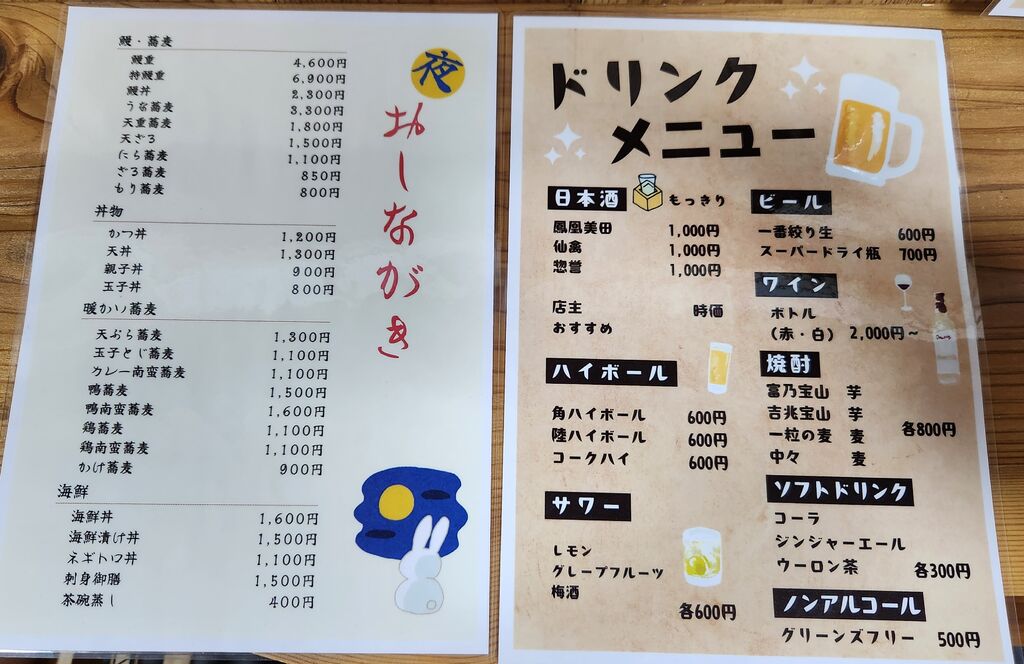 夜
おしながき
鰻・蕎麦
鰻重 4,600円
特鰻重 6,900円
鰻丼 2,300円
うな蕎麦 3,300円
天重蕎麦 1,800円
天ざる 1,500円
にら蕎麦 1,100円
ざる蕎麦 850円
もり蕎麦 800円
丼物
かつ丼 1,200円
天丼 1,300円
親子丼 900円
玉子丼 800円
暖かい蕎麦
天ぷら蕎麦 1,300円
玉子とじ蕎麦 1,100円
カレー南蛮蕎麦 1,100円
鴨蕎麦 1,500円
鴨南蛮蕎麦 1,600円
鶏蕎麦 1,100円
鶏南蛮蕎麦 1,100円
かけ蕎麦 900円
海鮮
海鮮丼 1,600円
海鮮漬け丼 1,500円
ネギトロ丼 1,100円
刺身御膳 1,500円
茶碗蒸し 400円
ドリンク
メニュー
日本酒 もっきり
鳳凰美田 1,000円
仙禽 1,000円
惣誉 1,000円
店主 時価
おすすめ
ハイボール
角ハイボール 600円
陸ハイボール 600円
コークハイ 600円
サワー
レモン
グレープフルーツ
梅酒
各600円
ビール
一番絞り生 600円
スーパードライ瓶 700円
ワイン
ボトル
(赤・白) 2,000円~
焼酎
富乃宝山 芋
吉兆宝山 芋
一粒の麦 麦
中々 麦
各800円
ソフトドリンク
コーラ
ジンジャーエール
ウーロン茶 各300円
ノンアルコール
グリーンズフリー 500円